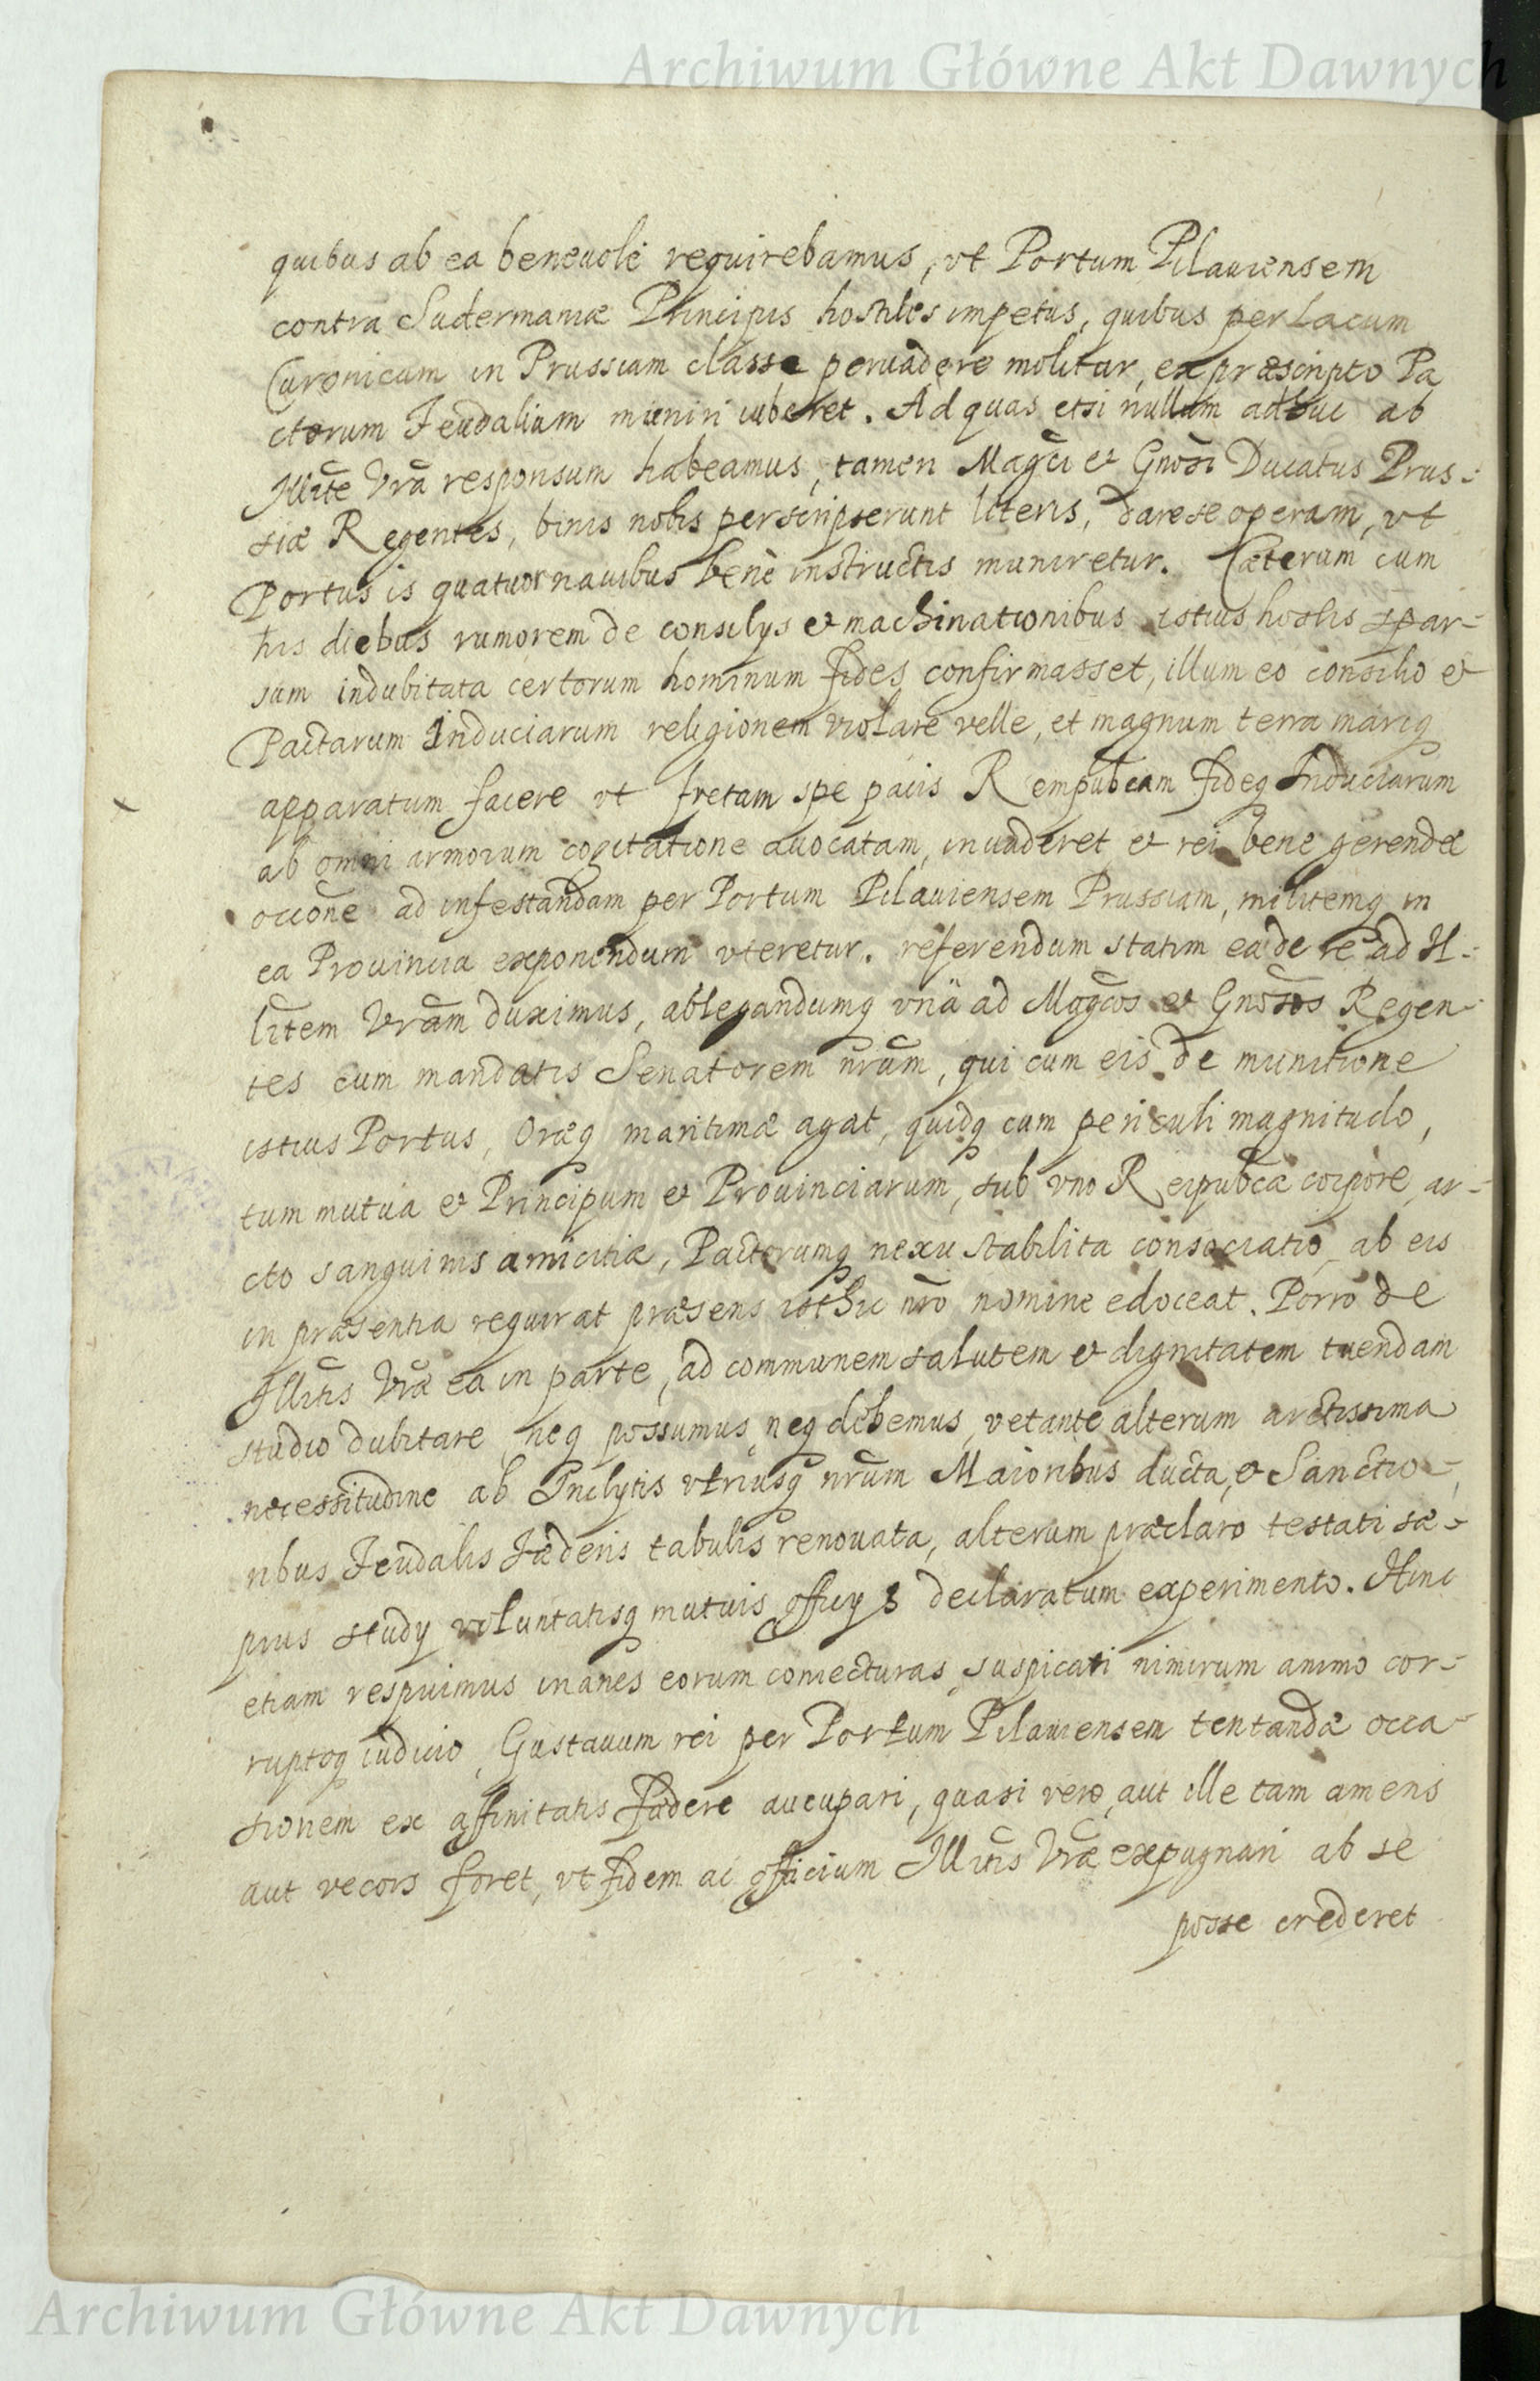 Archiwum Główne Akt Dawnych
quibus ab ea beneuolè requirebamus, vt Portum Pilauiensem
contra Sudermaniæ Principis hostiles impetus, quibus per Lacum
Curonicum in Prussiam classe peruadere molitur, ex præscripto Pa
ctorum Feudalium muniri iuberet. Ad quas etsi nullum adhuc ab
Illite Vrã responsum habeamus, tamen Magci et Gnosi Ducatus Prus-
siæ Regentes, binis nobis perscripserunt literis, dare se operam, vt
Portus is quatuor nauibus benè instructis muniretur. Cæterum cum
his diebus rumorem de consilys et machinationibus istius hostis spar-
sum indubitata certorum hominum fides confirmasset, illum eo consilio et
Pactarum Induciarum religionem violare velle, et magnum terra mariq
apparatum facere vt fretam spe pacis Rempubcam fideq Induciarum
ab omni armorum cogitatione auocatam, inuaderet et rei bene gerendæ
occone ad infestandam per Portum Pilauiensem Prussiam, militemq in
ea Prouincia exponendum vteretur. referendum statim ea de re ad Il-
litem Vram duximus, ablegandumq vnà ad Magcos et Gnosos Regen-
tes cum mandatis Senatorem nrum, qui cum eis de munitione
istius Portus, Oræq maritimæ agat, quidq cum periculi magnitudo,
tum mutua et Principum et Prouinciarum, sub vno Reipubcæ corpore, ar-
cto sanguinis amicitiæ, Pactorumq nexu stabilita consociatio, ab eis
in præsentia requirat præsens isthic nro nomine edoceat. Porro de
Illitis Vræ ea in parte, ad communem salutem et dignitatem tuendam
studio dubitare, neq possumus, neq debemus, vetante alterum arctissima
necessitudine ab Inclytis vtriusq nrum Maioribus ducta, et Sanctio-
nibus Feudalis Fæderis tabulis renouata, alterum præclaro testati sæ-
pius study voluntatisq mutuis officys declaratum experimento. Hinc
etiam respuimus inanes eorum coniecturas, suspicati nimirum animo cor-
ruptoq iudicio, Gustauum rei per Portum Pilauiensem tentandæ occa-
sionem ex affinitatis fædere aucupari, quasi vero, aut ille tam amens
aut vecors foret, vt fidem ac officium Illitis Vræ expugnari ab se
posse crederet
Archiwum Główne Akt Dawnych